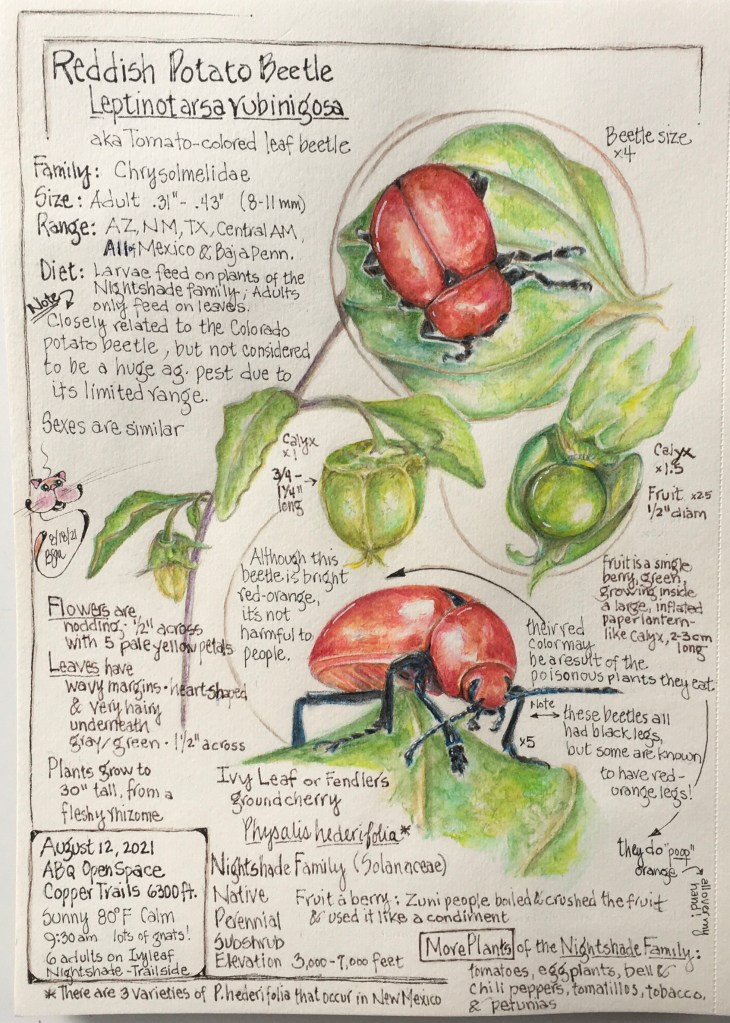 Reddish Potato Beetle
Leptinotarsa rubinigosa
aka Tomato-colored leaf beetle
Family: Chrysolmelidae
Size: Adult .31"- .43" (8-11 mm)
Range: AZ, NM, TX, Central AM,
All of Mexico & Baja Penn.
Diet: Larvae feed on plants of the
Nightshade family; Adults
only feed on leaves.
Note
Closely related to the Colorado
potato beetle, but not considered
to be a huge ag. pest due to
its limited range.
Sexes are similar
Beetle size
x4
Calyx
x1
3/4-
1 1/4"
long
Calyx
x1.5
Fruit x2.5
1/2" diam
8/18/21
Although this
beetle is bright
red-orange,
it's not
harmful to
people.
Fruit is a single
berry, green,
growing inside
a large, inflated
paper lantern-
like calyx, 2-3cm
long
their red
color may
be a result of the
poisonous plants they eat.
Flowers are
nodding; 1/2" across
with 5 pale yellow petals
Leaves have
wavy margins · heart-shaped
& very hairy
underneath
gray/green · 1 1/2" across
Plants grow to
30" tall, from a
fleshy rhizome
Note
these beetles all
had black legs,
but some are known
to have red-
orange legs!
x5
they do "poop"
orange
all over my
hand!
Ivy Leaf or Fendlers
groundcherry
Physalis hederifolia*
Nightshade Family (Solanaceae)
Native
Perennial
Subshrub
Elevation 3,000-7,000 feet
Fruit a berry; Zuni people boiled & crushed the fruit
& used it like a condiment
More Plants of the Nightshade Family:
tomatoes, eggplants, bell &
chili peppers, tomatillos, tobacco,
& petunias
August 12, 2021
ABQ Open Space
Copper Trails 6300 ft.
Sunny 80°F Calm
9:30 am lots of gnats!
6 adults on Ivyleaf
Nightshade - Trailside
* There are 3 varieties of P. hederifolia that occur in New Mexico